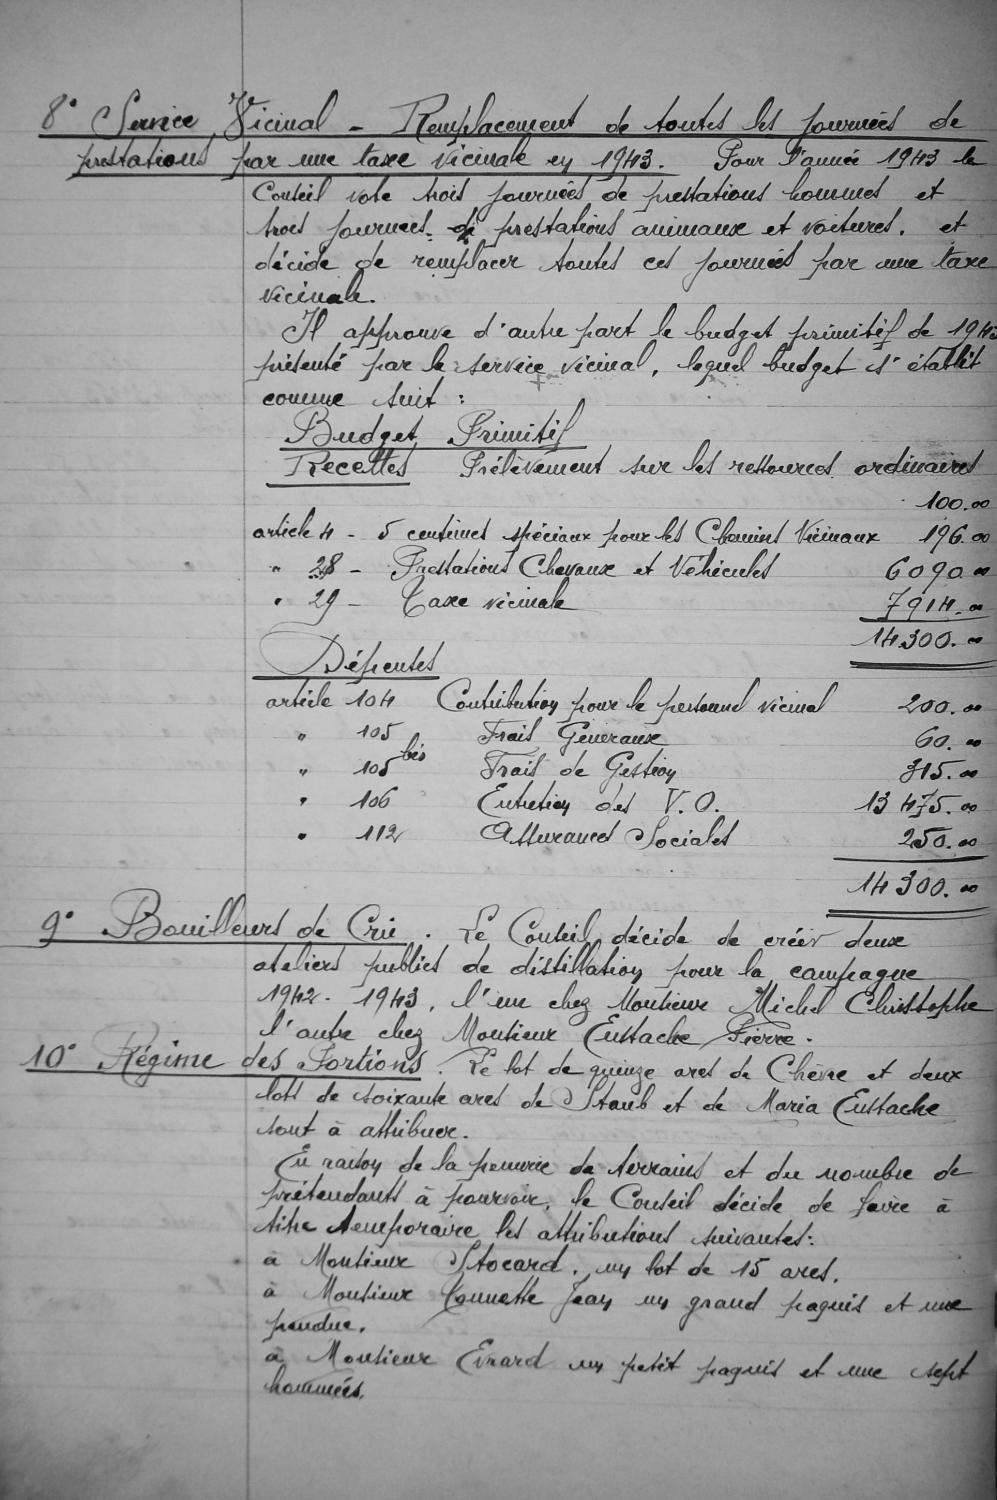 8° Service Vicinal - Remplacement de toutes les journées de
prestations par une taxe vicinale en 1943. Pour l'année 1943 le
Conseil vote trois journées de prestations hommes et
trois journées de prestations animaux et voitures. et
décide de remplacer toutes ces journées par une taxe
vicinale.
Il approuve d'autre part le budget primitif de 1943
présenté par le service vicinal, lequel budget s'établit
comme suit :
Budget Primitif
Recettes Prélèvement sur les ressources ordinaires
100.00
article 4 - 5 centimes spéciaux pour les Chemins Vicinaux 196.00
" 28 - Prestations Chevaux et Véhicules 6090.00
" 29 - Taxe vicinale 7914.00
14300.00
Dépenses
article 104 Contribution pour le personnel vicinal 200.00
" 105 Frais Généraux 60.00
" 105 bis Frais de Gestion 315.00
" 106 Entretien des V.O. 13 475.00
" 112 Assurances Sociales 250.00
14 300.00
9° Bouilleurs de Cru. Le Conseil décide de créer deux
ateliers publics de distillation pour la campagne
1942-1943, l'un chez Monsieur Michel Christophe
l'autre chez Monsieur Eustache Pierre.
10° Régime des Portions. Le lot de quinze ares de Chèvre et deux
lots de soixante ares de Staub et de Maria Eustache
sont à attribuer.
En raison de la pénurie de terrains et du nombre de
prétendants à pourvoir, le Conseil décide de faire à
titre temporaire les attributions suivantes:
à Monsieur Stocard. un lot de 15 ares.
à Monsieur Jean un grand paquis et une
pendue.
à Monsieur Evrard un petit paquis et une sept
hommées.